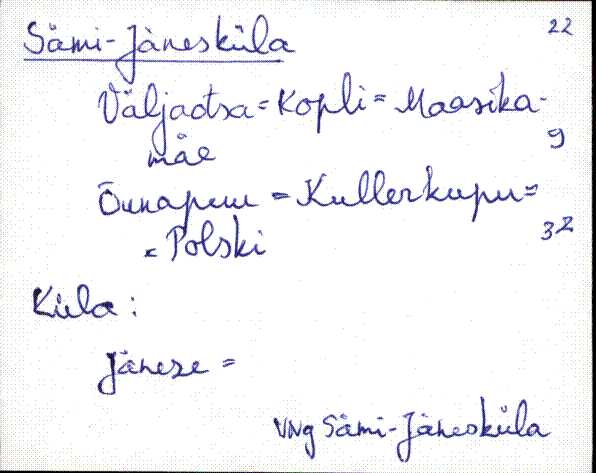 22
Sämi-Jänesküla
Väljaotsa = Kopli = Maasika-
mäe 9
Õunapuu = Kullerkupu =
= Polski 32
Küla:
Jänese =
VNg Sämi-Jänesküla